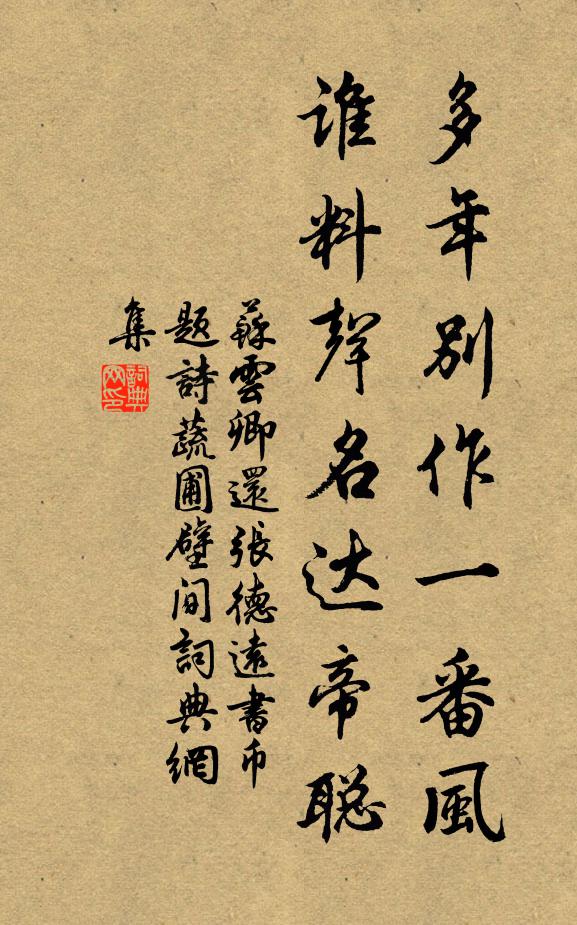 多年別作一番風
谁料聲名达帝聪
蘇雲卿還張德遠書币
题詩蔬圃壁间詞典網
集
詞典网印